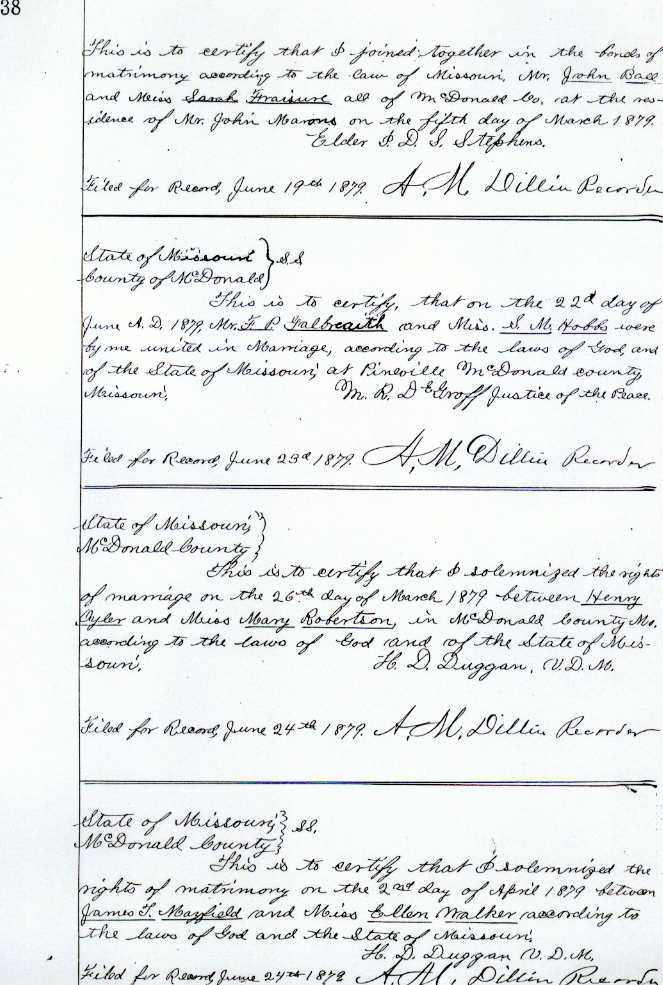 38
This is to certify that I joined together in the bonds of
matrimony according to the law of Missouri, Mr. John Ball
and Miss Sarah Fraisure all of McDonald Co. at the res-
idence of Mr. John Marons on the fifth day of March 1879.
Elder I. D. S. Stephens.
Filed for Record, June 19th 1879. A. M. Dillin Recorder
State of Missouri } SS
County of McDonald }
This is to certify, that on the 22d day of
June A.D. 1879, Mr. F. P. Galbreaith and Miss. S. M. Hobbs were
by me united in Marriage, according to the laws of God, and
of the State of Missouri, at Pineville McDonald county,
Missouri. M. R. DeGroff Justice of the Peace.
Filed for Record, June 23d 1879. A. M. Dillin Recorder
State of Missouri, }
McDonald County }
This is to certify that I solemnized the rights
of marriage on the 26th day of March 1879 between Henry
Oyler and Miss Mary Robertson, in McDonald County Mo.
according to the laws of God and of the State of Mis-
souri. H. D. Duggan, V.D.M.
Filed for Record, June 24th 1879. A. M. Dillin Recorder
State of Missouri, } SS.
McDonald County }
This is to certify that I solemnized the
rights of matrimony on the 2nd day of April 1879 between
James T. Mayfield and Miss Ellen Walker according to
the laws of God and the State of Missouri.
H. D. Duggan V.D.M.
Filed for Record June 24th 1879 A. M. Dillin Recorder